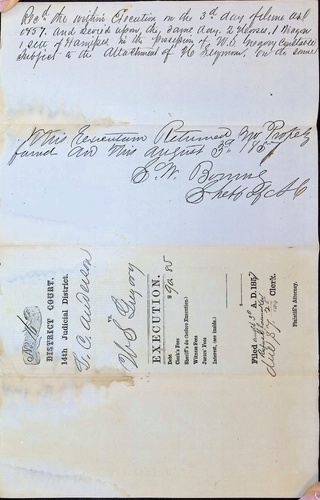 Recd the within Execution on the 3d day of June AD
1857. and levied upon the same day. 2 Horses, 1 Wagon
1 sett of Harness in the Possession of W. S. Gregory Constable
subject to the Attachment of H Seymour, on do same
This Execution Returned No Property
found and this August 3d 1857
S. W. Boring
Sheff
DISTRICT COURT.
14th Judicial District.
T. C. Anderson
vs.
W S Gregory
EXECUTION.
Debt $ 92 85
Clerk's Fees
Sheriff's do (before Execution.)
Witness Fees
Justices' Fees
Interest, (see inside.)
Filed Aug 3d A. D. 1857
Clerk.
Plaintiff's Attorney.